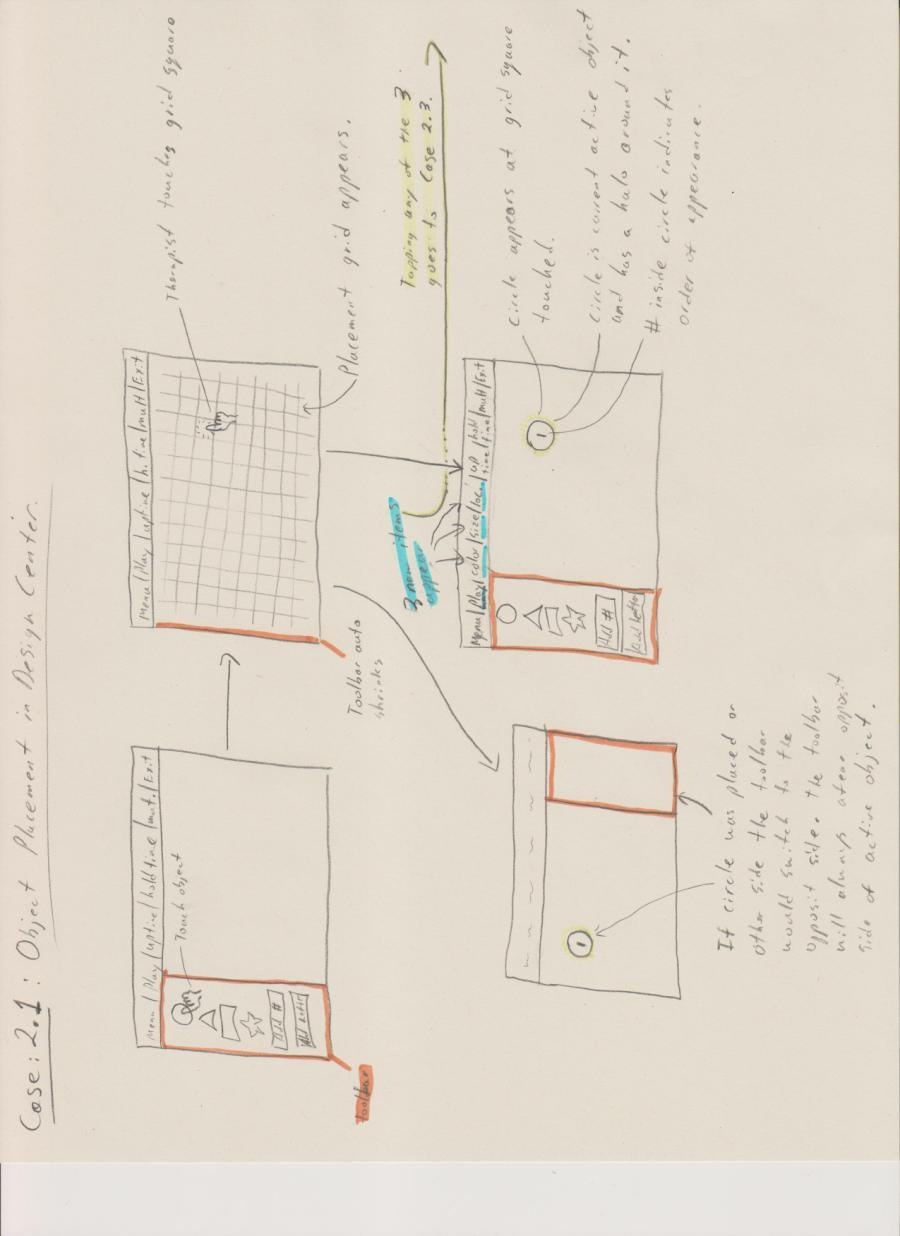 Case: 2.1: Object Placement in Design Center.
Menu | Play | uptime | hold time | mult. | Exit
Touch object
Add #
Add letter
toolbar
Menu | Play | uptime | h.time | mult | Exit
Therapist touches grid square
Placement grid appears.
Toolbar auto
shrinks
3 new items
appear
Tapping any of the 3
goes to Case 2.3.
Menu | Play | color | size | loci | up time | hold time | mult | Exit
Add #
Add letter
1
Circle appears at grid square
touched.
Circle is current active object
and has a halo around it.
# inside circle indicates
order of appearance.
1
If circle was placed on
other side the toolbar
would switch to the
opposit side. the toolbar
will always appear opposit
side of active object.